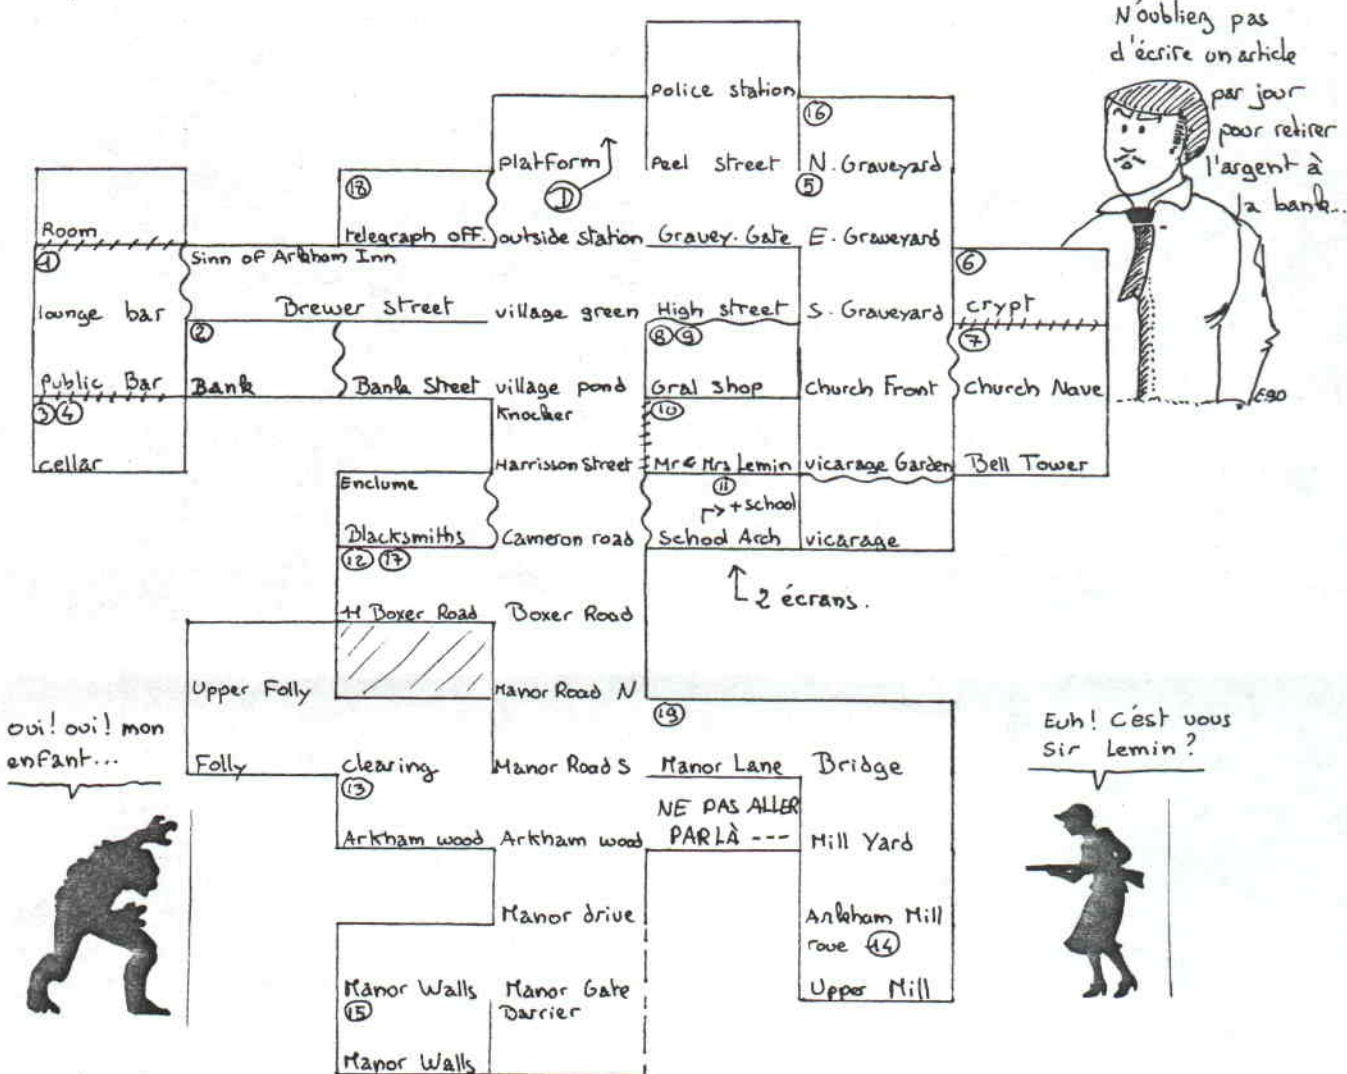 N'oubliez pas
d'écrire un article
par jour
pour retirer
l'argent à
la bank...
EGO
Police station
16
Platform
Peel street
N. Graveyard
D
5
18
Room
telegraph off.
outside station
Gravey. Gate
E. Graveyard
1
Sinn of Arkham Inn
6
lounge bar
Brewer Street
village green
High street
S. Graveyard
crypt
2
8 9
7
Public Bar
Bank
Bank Street
village pond
Gral Shop
Church Front
Church Nave
3 4
Knocker
10
cellar
Harrisson Street
Mr & Mrs Lemin
vicarage Garden
Bell Tower
Enclume
11
+ school
Blacksmiths
Cameron road
School Arch
vicarage
12 17
2 écrans.
H Boxer Road
Boxer Road
Upper Folly
Manor Road N
19
oui! oui! mon
enfant...
Euh! C'est vous
Sir Lemin?
Folly
clearing
Manor Road S
Manor Lane
Bridge
13
NE PAS ALLER
PAR LÀ ---
Arkham wood
Arkham wood
Mill Yard
Manor drive
Arkham Mill
roue 14
Manor Walls
Manor Gate
Upper Mill
15
Barrier
Manor Walls